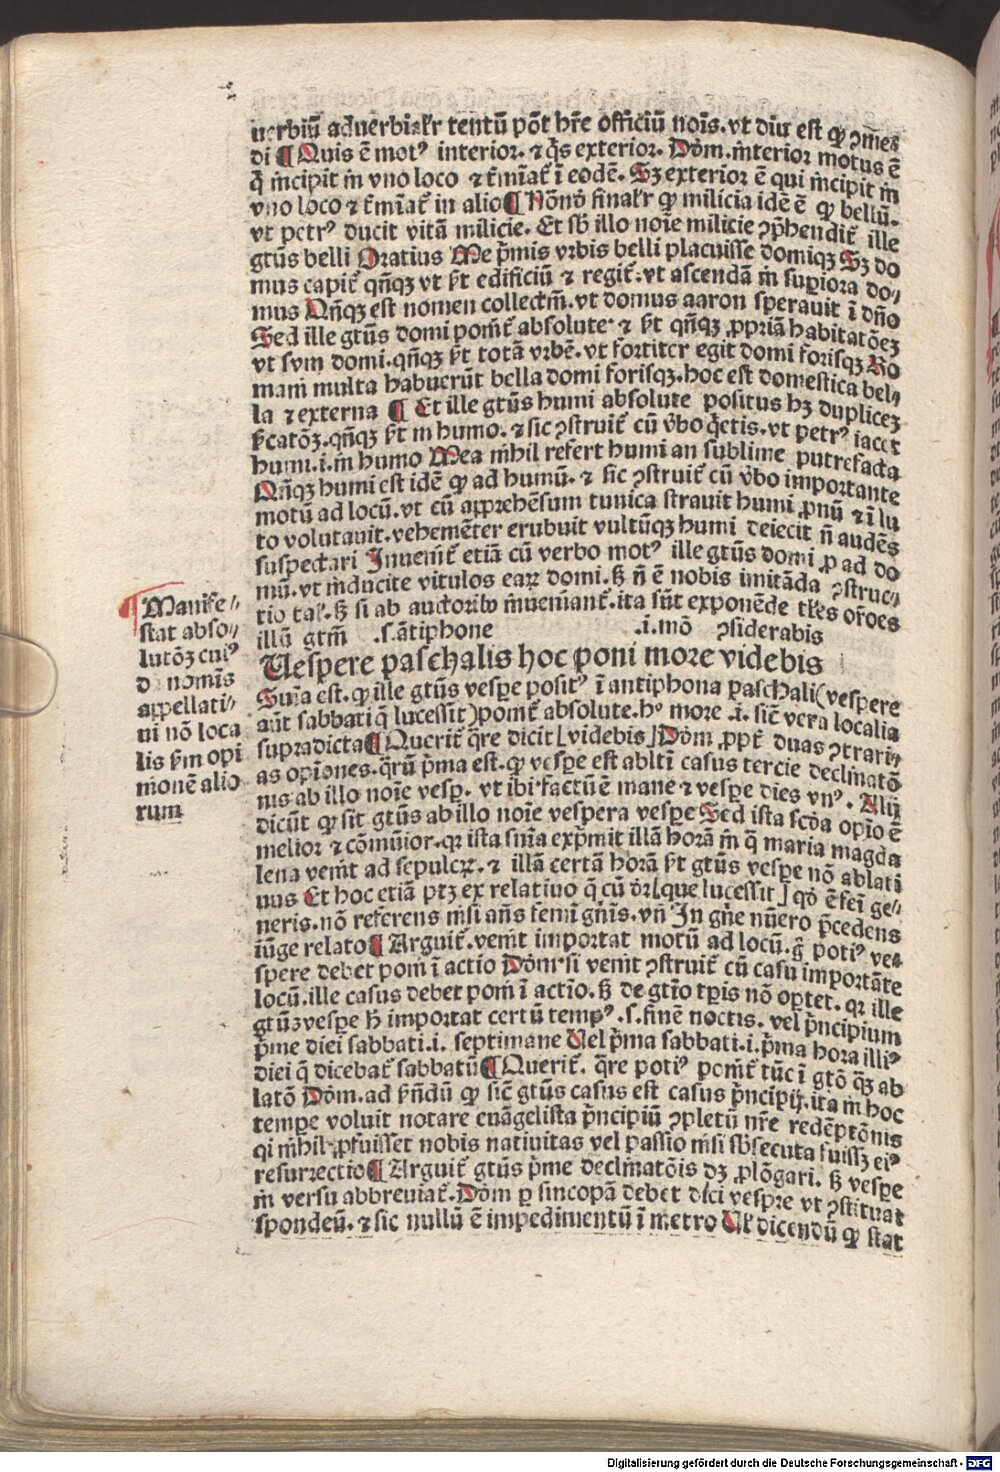 uerbiū aduerbialr̄ tentū pōt hr̄e officiū nois̄. vt diu est qꝫ ꝯmēs
di ¶ Quis ē motꝰ interior. ⁊ q̄s exterior. Dōm. interior motus ē
q̄ incipit in vno loco ⁊ t̄miat̄ ī eodē. Sꝫ exterior ē qui incipit in
vno loco ⁊ t̄miat̄ in alio ¶ Nōnō finalr̄ qꝫ milicia idē ē qꝫ bellū.
vt petrꝰ ducit vitā milicie. Et sb̄ illo noīe milicie ꝯp̄hendit̄ ille
gt̄us belli Oratius Me p̄mis vrbis belli placuisse domiqꝫ Sꝫ do
mus capit̄ qn̄qꝫ vt ꝓt edificiū ⁊ regit̄. vt ascendā in supiora do⸗
mus Qn̄qꝫ est nomen collectm̄. vt domus aaron sperauit ī dn̄o
Sed ille gt̄us domi pōit̄ absolute ⁊ ꝓt qn̄qꝫ ꝓpriā habitatōeꝫ
vt svm domi. qn̄qꝫ ꝓt totā vrbē. vt fortiter egit domi forisqꝫ Ro
mani multa habuerūt bella domi forisqꝫ. hoc est domestica bel⸗
la ⁊ externa ¶ Et ille gt̄us humi absolute positus hꝫ dupliceꝫ
ꝓcatōꝫ. qn̄qꝫ ꝓt in humo. ⁊ sic ꝯstruit̄ cū v̄bo q̄etis. vt petrꝰ iacet
humi. i. in humo Mea nihil refert humi an sublime putrefacta
Qn̄qꝫ humi est idē qꝫ ad humū. ⁊ sic ꝯstruit̄ cū v̄bo importante
motū ad locū. vt cū apprehēsum tunica strauit humi ꝓnū ⁊ ī lu
to volutauit. vehemēter erubuit vultūqꝫ humi deiecit n̄ audēs
suspectari Inuenit̄ etiā cū verbo motꝰ ille gt̄us domi ꝓ ad do
mū. vt inducite vitulos eaꝝ domi. sꝫ n̄ ē nobis imitāda ꝯstruc⸗
tio tal̄. sꝫ si ab auctoribꝰ inueniant̄. ita sūt exponēde tl̄es or̄oes
illū gtm̄ .s. ātiphone .i. mō ꝯsiderabis
Uespere paschalis hoc poni more videbis
Sn̄ia est. qꝫ ille gt̄us vesꝑe positꝰ ī antiphona paschali (vespere
aūt sabbati q̄ lucessit) pōit̄ absolute. hꝰ more .i. sic̄ vera localia
supradicta ¶ Querit̄ q̄re dicit [videbis] Dōm ꝓpt̄ duas ꝯtrari⸗
as opiones. q̄rū p̄ma est. qꝫ vesꝑe est ablti casus tercie declinatō
nis ab illo noīe vesꝑ. vt ibi factū ē mane ⁊ vesꝑe dies vnꝰ. Alij
dicūt qꝫ sit gt̄us ab illo noīe vespera vesꝑe Sed ista scd̄a opio ē
melior ⁊ cōmūior. qꝛ ista sn̄ia exp̄mit illā horā in q̄ maria magda
lena venit ad sepulcꝝ. ⁊ illā certā horā ꝓt gt̄us vesꝑe nō ablati
uus Et hoc etiā ptꝫ ex relatiuo q̄ cū dr̄ [que lucessit] qd̄ ē fei ge⸗
neris. nō referens nisi an̄s femi gn̄is. vn̄ In gn̄e nūero p̄cedens
iūge relato ¶ Arguit̄. venit importat motū ad locū. ḡ potiꝰ ve⸗
spere debet poni ī actio Dōm si venit ꝯstruit̄ cū casu importāte
locū. ille casus debet poni ī actio. sꝫ de gt̄io tꝑis nō optet. qꝛ ille
gt̄us vesꝑe h̄ importat certū tempꝰ .s. finē noctis. vel p̄ncipium
p̄me diei sabbati .i. septimane Uel p̄ma sabbati .i. p̄ma hora illiꝰ
diei q̄ dicebat̄ sabbatū ¶ Querit̄. q̄re potiꝰ ponit̄ tūc ī gtō q̄ꝫ ab
latō Dōm. ad ꝓn̄dū qꝫ sic̄ gt̄us casus est casus p̄ncipij. ita in hoc
tempe voluit notare euāgelista p̄ncipiū ꝯpletū nr̄e redēptōnis
qi nihil ꝓfuisset nobis natiuitas vel passio nisi sb̄secuta fuissꝫ eiꝰ
resurrectio ¶ Arguit̄ gt̄us p̄me declinatōis dꝫ ꝓlōgari. sꝫ vesꝑe
in versu abbreuiat̄. Dōm ꝑ sincopā debet dici vespre vt ꝯstituat
spondeū. ⁊ sic nullū ē impedimentū ī metro Ul̄ dicendū qꝫ stat
Manife⸗
stat abso⸗
lutōꝫ cuiꝰ
dā nominis
appellati⸗
ui nō loca
lis ẜm opi
nionē alio
rum
Digitalisierung gefördert durch die Deutsche Forschungsgemeinschaft - DFG